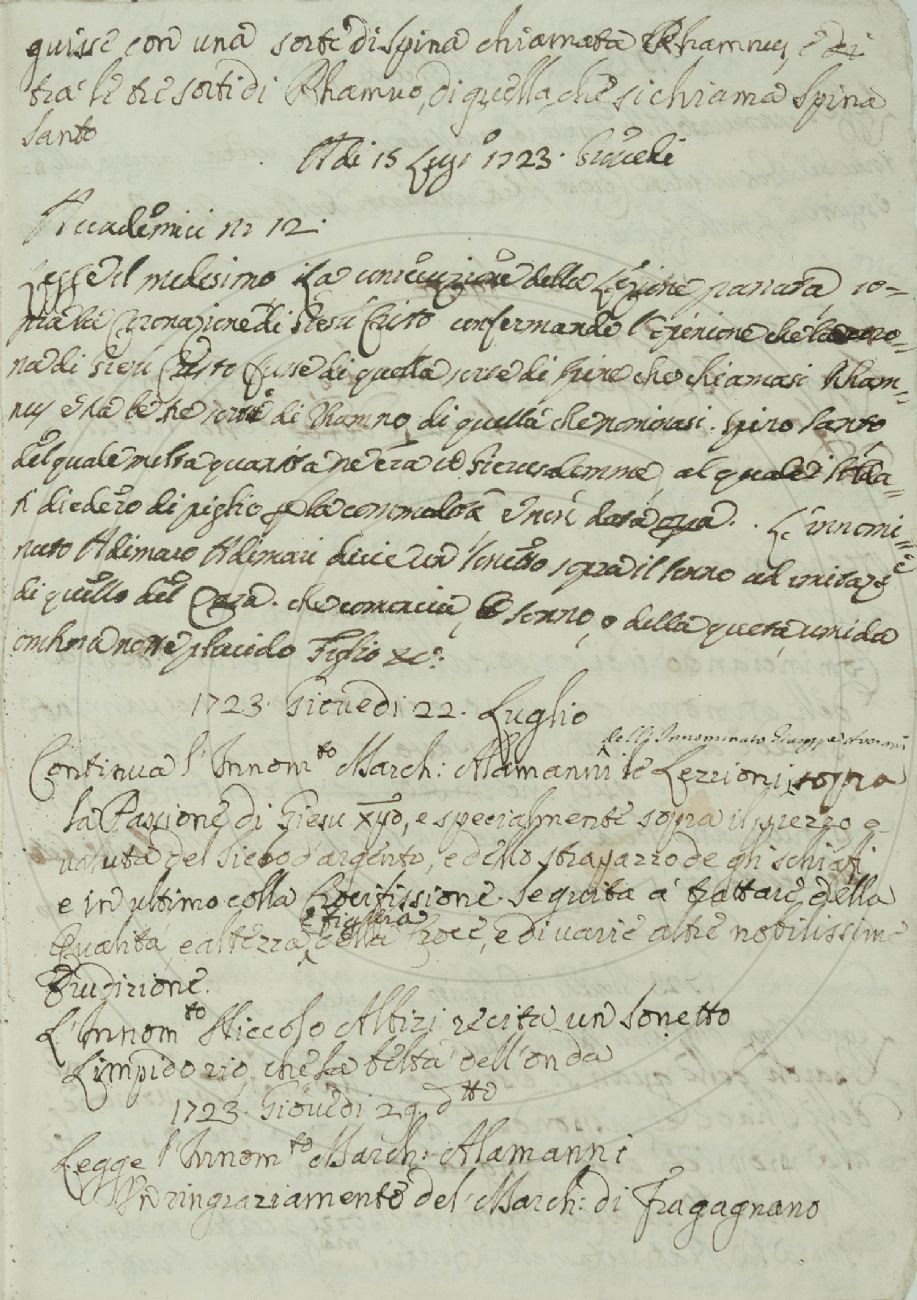 guisse con una sorte di spina chiamata Rhamnus, e di
tra le tre sorti di Rhamno, di quella, che si chiama Spina
Santo
A di 15 Lug.o 1723. Giovedi
Accademici n.o 12.
Lesse il medesimo la della Lezione passata, so=
pra la Coronazione di Giesù Cristo confermando l'opinione che la coro=
na di Giesù Cristo fusse di quella sorte di spine che chiamasi Rham=
nus e tra le tre sorte di Rhamno, di quella che nominasi Spino Santo
del quale molta quantità ne era in Gierusalemme, al quale i solda=
ti diedero di piglio p la commodità L'innomi=
nato Adimaro Adimari disse un Sonetto sopra il sonno ad imitaz.e
di quello del Casa. che comincia, O sonno, o della queta, umida
ombrosa notte placido figlio &c.
1723. Giovedi 22. Luglio
Continua l'Innom.to March: Alamanni le Lezzioni dell' Innominato Giuseppe Averani sopra
la Passione di Giesu Xpto, e specialmente sopra il prezzo e
valuta del siclo d'argento, e dello strapazzo de gli schiaffi
e in ultimo colla Crocifissione. Seguita a trattare della
Qualità, e altezza, e figura della Croce, e di varie altre nobilissime
Erudizione.
L'Innom.to Niccolo Albizi recita un Sonetto
Limpido rio, che la beltà dell'onda
1723. Giovedi 29. d.tto
Legge l'Innom.to March: Alamanni
Un ringraziamento del March: di Fragagnano